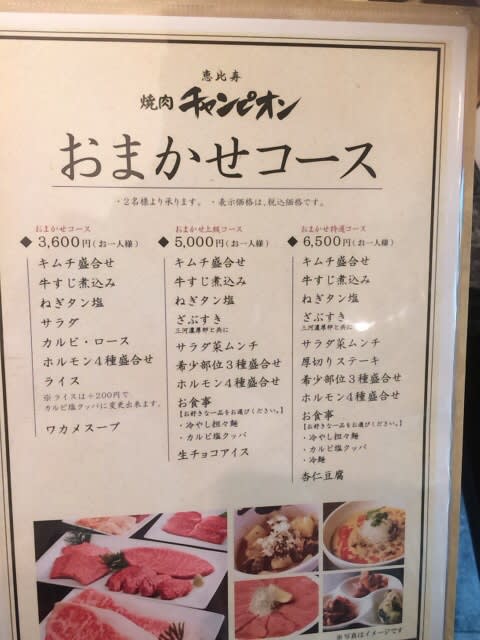 恵比寿
焼肉 チャンピオン
おまかせコース
・2名様より承ります。 ・表示価格は、税込価格です。
おまかせコース
◆ 3,600円(お一人様)
キムチ盛合せ
牛すじ煮込み
ねぎタン塩
サラダ
カルビ・ロース
ホルモン4種盛合せ
ライス
※ライスは+200円で
カルビ塩クッパに変更出来ます。
ワカメスープ
おまかせ上級コース
◆ 5,000円(お一人様)
キムチ盛合せ
牛すじ煮込み
ねぎタン塩
ざぶすき
三河濃厚卵と共に
サラダ菜ムンチ
希少部位3種盛合せ
ホルモン4種盛合せ
お食事
【お好きな一品をお選びください。】
・冷やし担々麺
・カルビ塩クッパ
生チョコアイス
おまかせ特選コース
◆ 6,500円(お一人様)
キムチ盛合せ
牛すじ煮込み
ねぎタン塩
ざぶすき
三河濃厚卵と共に
サラダ菜ムンチ
厚切りステーキ
希少部位3種盛合せ
ホルモン4種盛合せ
お食事
【お好きな一品をお選びください。】
・冷やし担々麺
・カルビ塩クッパ
・冷麺
杏仁豆腐
※写真はイメージです